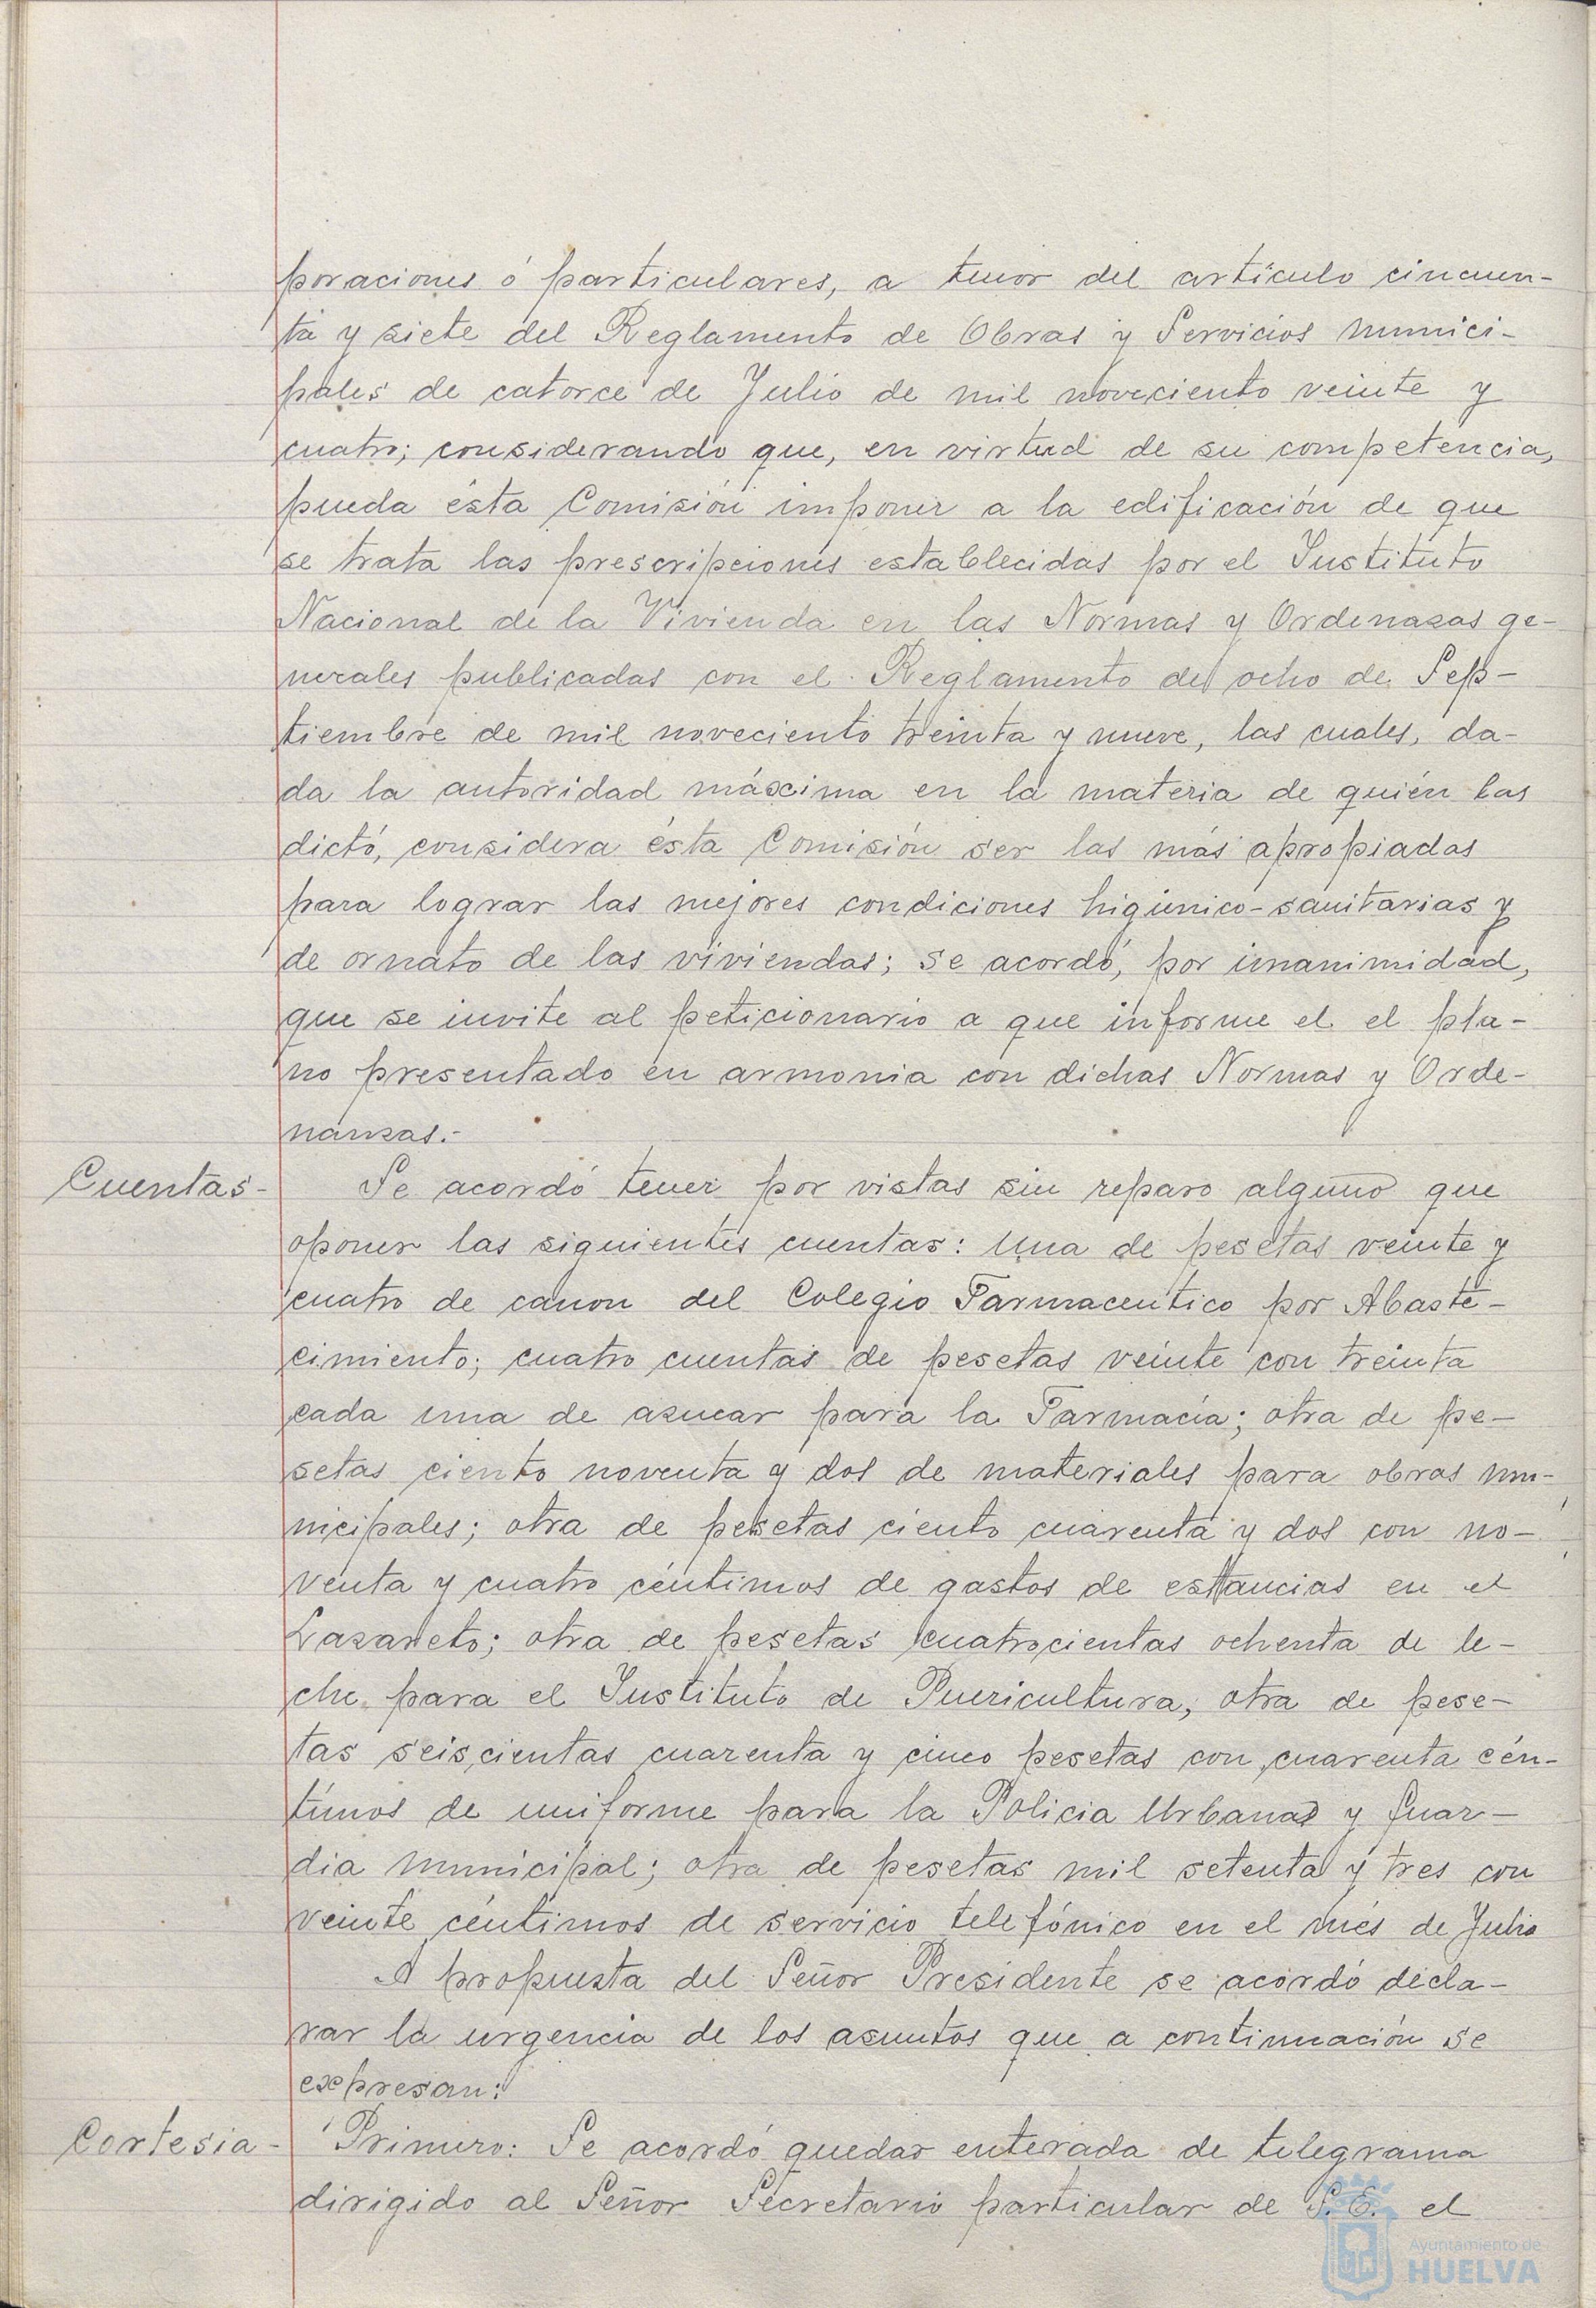 poraciones ó particulares, a tenor del artículo cincuen-
ta y siete del Reglamento de Obras y Servicios munici-
pales de catorce de Julio de mil noveciento veinte y
cuatro; considerando que, en virtud de su competencia,
pueda ésta Comisión imponer a la edificación de que
se trata las prescripciones establecidas por el Instituto
Nacional de la Vivienda en las Normas y Ordenazas ge-
nerales publicadas con el Reglamento de ocho de Sep-
tiembre de mil noveciento treinta y nueve, las cuales, da-
da la autoridad máxima en la materia de quién las
dictó, considera ésta Comisión ser las más apropiadas
para lograr las mejores condiciones higiénico-sanitarias y
de ornato de las viviendas; se acordó, por unanimidad,
que se invite al peticionario a que informe el el pla-
no presentado en armonia con dichas Normas y Orde-
nanzas.-
Cuentas- Se acordó tener por vistas sin reparo alguno que
oponer las siguientes cuentas: Una de pesetas veinte y
cuatro de canon del Colegio Farmaceutico por Abaste-
cimiento; cuatro cuentas de pesetas veinte con treinta
cada una de azucar para la Farmacia; otra de pe-
setas ciento noventa y dos de materiales para obras mu-
nicipales; otra de pesetas ciento cuarenta y dos con no-
venta y cuatro céntimos de gastos de estancias en el
Lazareto; otra de pesetas cuatrocientas ochenta de le-
che para el Instituto de Puericultura; otra de pese-
tas seiscientas cuarenta y cinco pesetas con cuarenta cén-
timos de uniforme para la Policia Urbana y Guar-
dia municipal; otra de pesetas mil setenta y tres con
veinte céntimos de servicio telefónico en el més de Julio
A propuesta del Señor Presidente se acordó decla-
rar la urgencia de los asuntos que a continuación se
expresan:
Cortesia- Primero: Se acordó quedar enterada de telegrama
dirigido al Señor Secretario particular de S.E. el
Ayuntamiento de
HUELVA